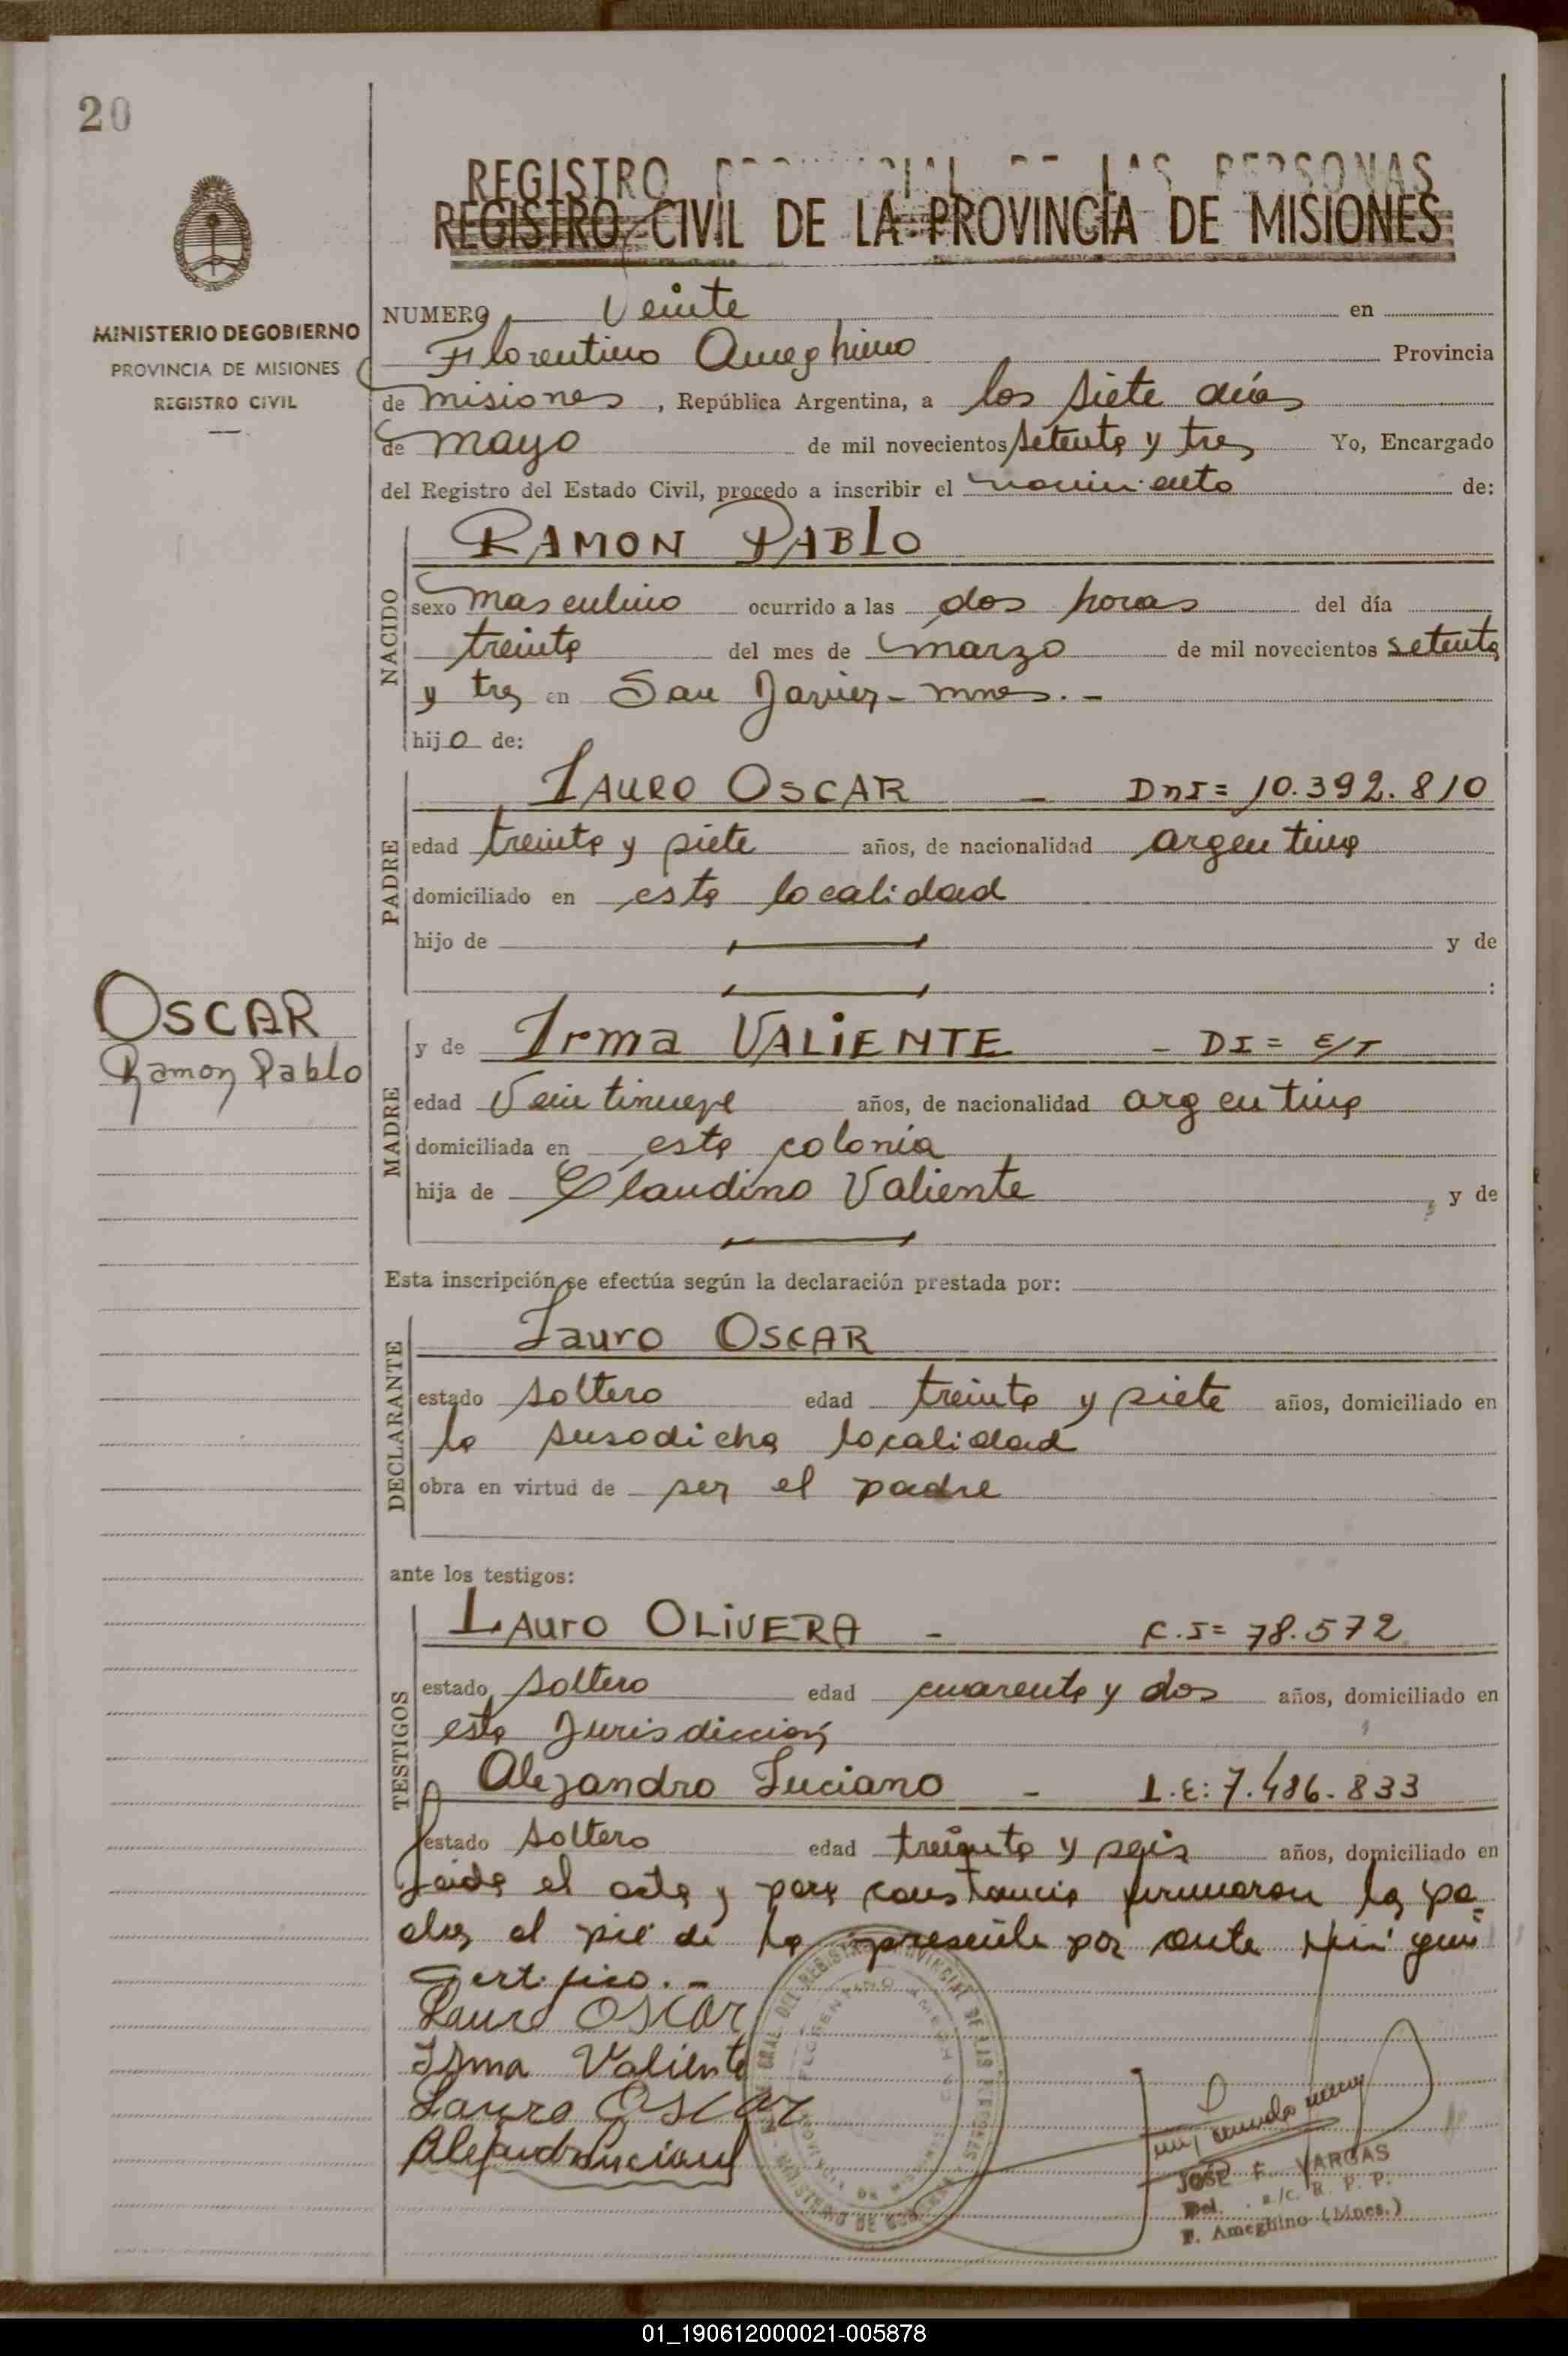 20
MINISTERIO DE GOBIERNO
PROVINCIA DE MISIONES
REGISTRO CIVIL
REGISTRO PROVINCIAL DE LAS PERSONAS
REGISTRO CIVIL DE LA PROVINCIA DE MISIONES
NUMERO Veinte en
Florentino Ameghino Provincia
de misiones, República Argentina, a los siete días
de mayo de mil novecientos setenta y tres Yo, Encargado
del Registro del Estado Civil, procedo a inscribir el nacimiento de:
NACIDO
RAMON PABLO
sexo masculino ocurrido a las dos horas del día
treinta del mes de marzo de mil novecientos setenta
y tres en San Javier - mnes. -
hijo de:
PADRE
LAURO OSCAR - DNI = 10.392.810
edad treinta y siete años, de nacionalidad argentina
domiciliado en esta localidad
hijo de y de
:
OSCAR
Ramon Pablo
MADRE
y de Irma VALIENTE - DI = E/T
edad Veintinueve años, de nacionalidad argentina
domiciliada en esta colonia
hija de Claudino Valiente, y de
Esta inscripción se efectúa según la declaración prestada por:
DECLARANTE
Lauro OSCAR
estado soltero edad treinta y siete años, domiciliado en
la susodicha localidad
obra en virtud de ser el padre
ante los testigos:
TESTIGOS
LAURO OLIVERA - C.I = 78.572
estado soltero edad cuarenta y dos años, domiciliado en
esta Jurisdicción
Alejandro Luciano - L.E: 7.486.833
estado soltero edad treinta y seis años, domiciliado en
Leida el acta y para constancia firmaron los pa=
dres al pie de la presente por ante mi que
certifico. -
Lauro OSCAR
Irma Valiente
Lauro OSCAR
Alejandro Luciano
JOSE F. VARGAS
Del. a/c. R. P. P.
F. Ameghino (Mnes.)
01_190612000021-005878